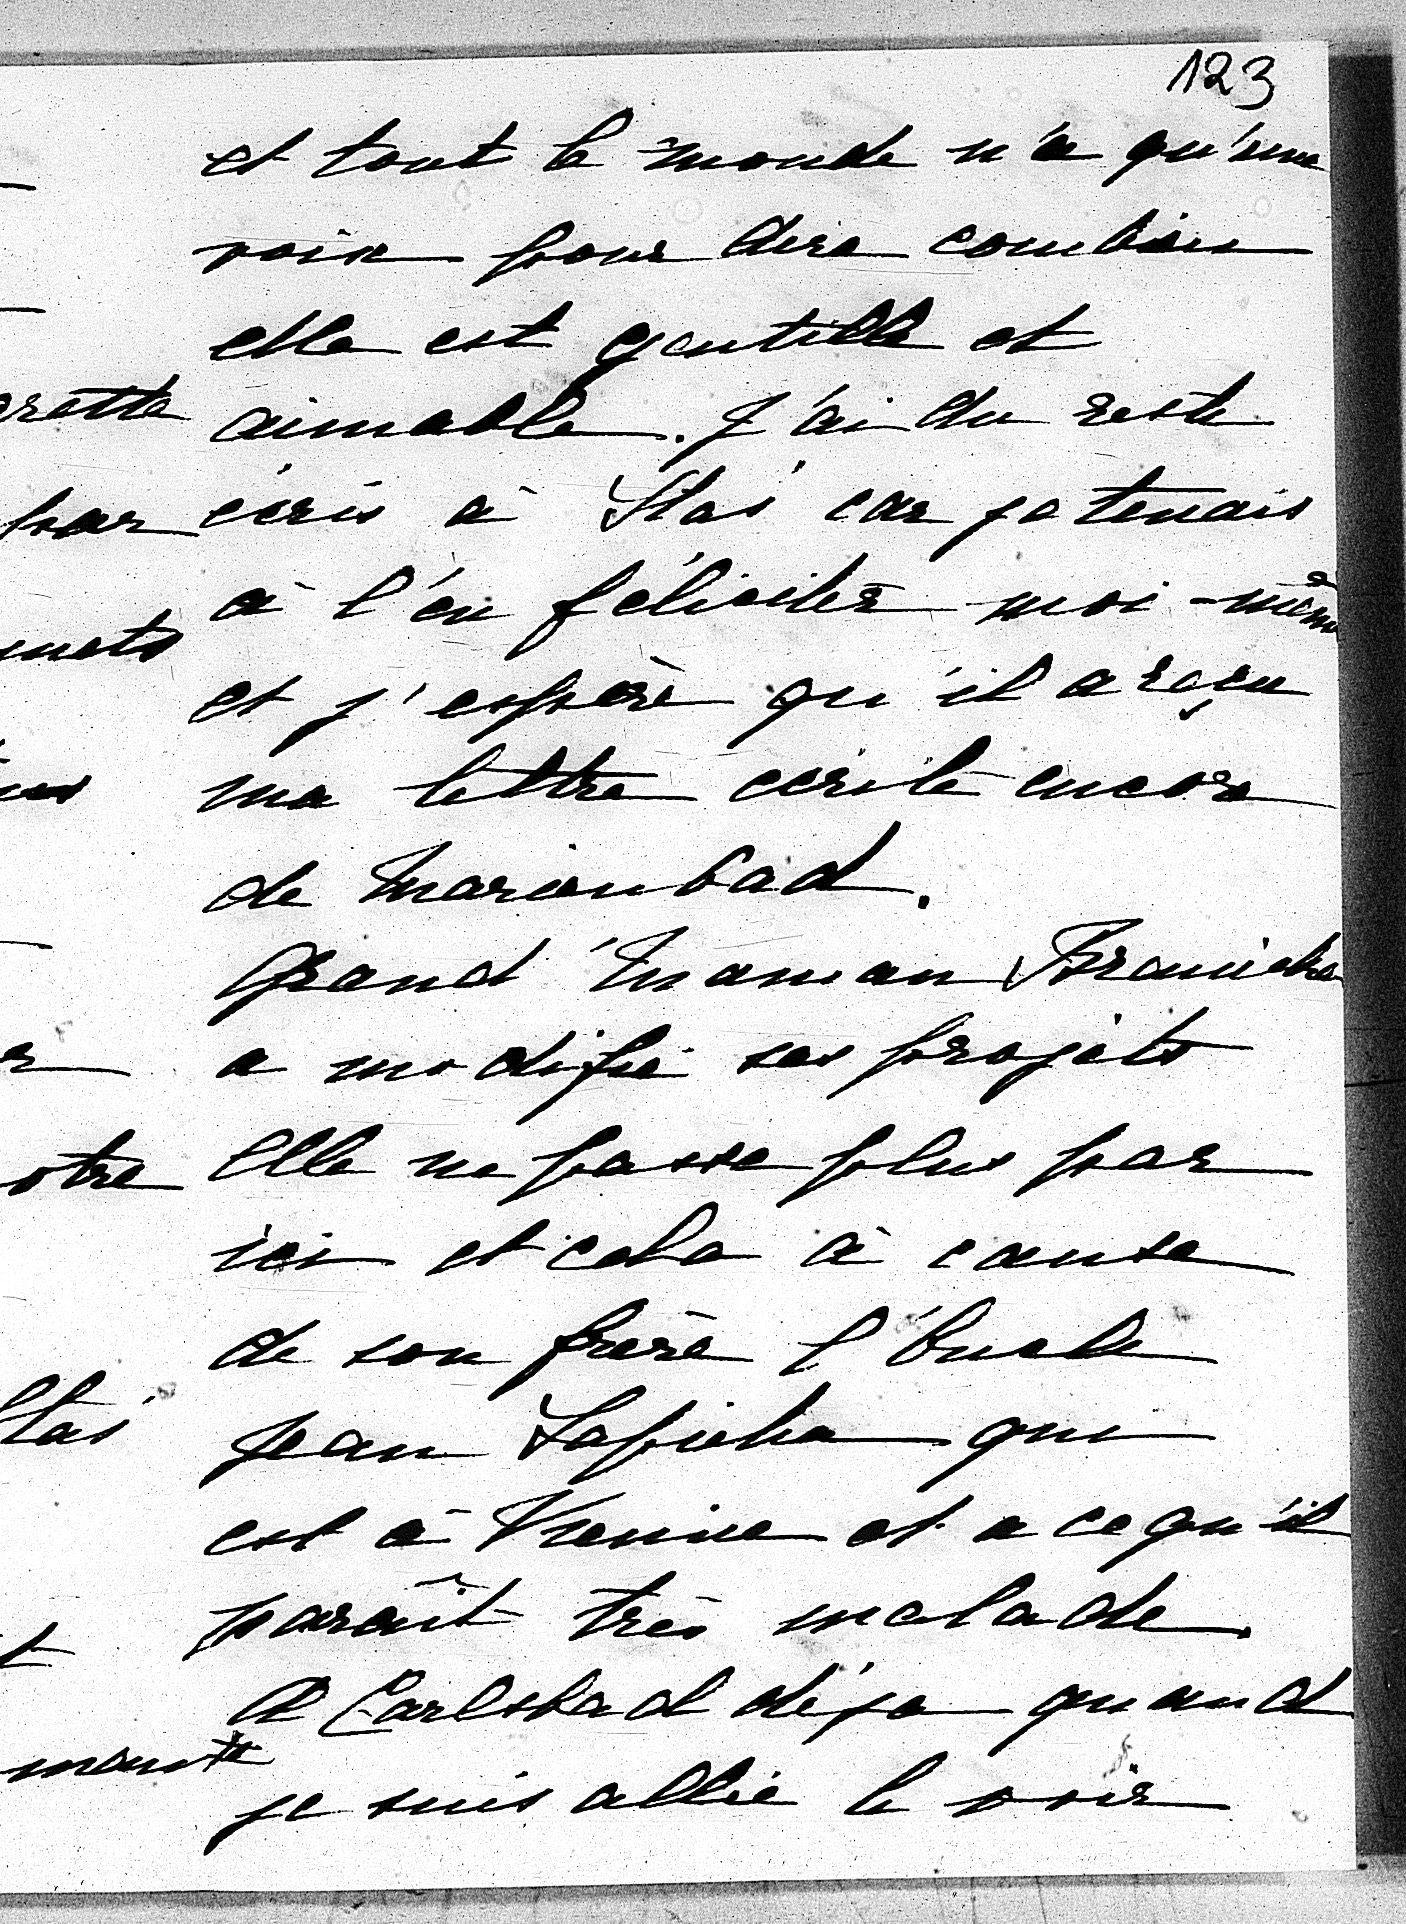 123
et tout le monde n'a qu'une
voix pour dire combien
elle est gentille et
aimable. J'ai du reste
écris à Stas' car je tenais
à l'en féliciter moi-même
et j'espère qu'il a reçu
ma lettre écrite encore
de Marienbad.
Grand' Maman Branicka
a modifié ses projets
Elle ne passe plus par
ici et cela à cause
de son frère l'Oncle
Jean Sapieha qui
est à Vienne et a ce qu'il
paraît très malade.
A Carlsbad déja quand
je suis allée le voir